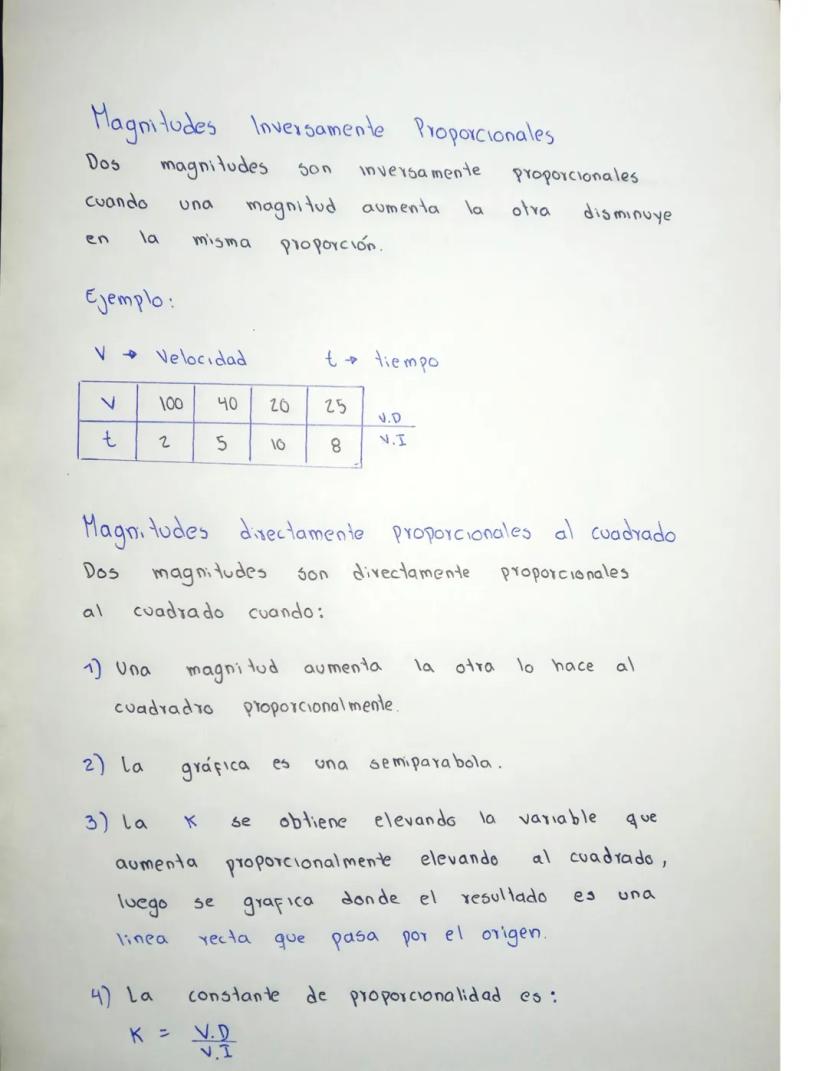 Magnitudes Inversamente Proporcionales
Dos magnitudes son inversamente proporcionales
cuando una magnitud aumenta la otra disminuye
en la misma proporción.
Ejemplo:
V → Velocidad t → tiempo
V 100 40 20 25 V.D
t 2 5 10 8 V.I
Magnitudes directamente proporcionales al cuadrado
Dos magnitudes son directamente proporcionales
al cuadrado cuando:
1) Una magnitud aumenta la otra lo hace al
cuadradro proporcionalmente.
2) La gráfica es una semiparabola.
3) La K se obtiene elevando la variable que
aumenta proporcionalmente elevando al cuadrado,
luego se grafica donde el resultado es una
linea recta que pasa por el origen.
4) La constante de proporcionalidad es:
K = V.D
V.I